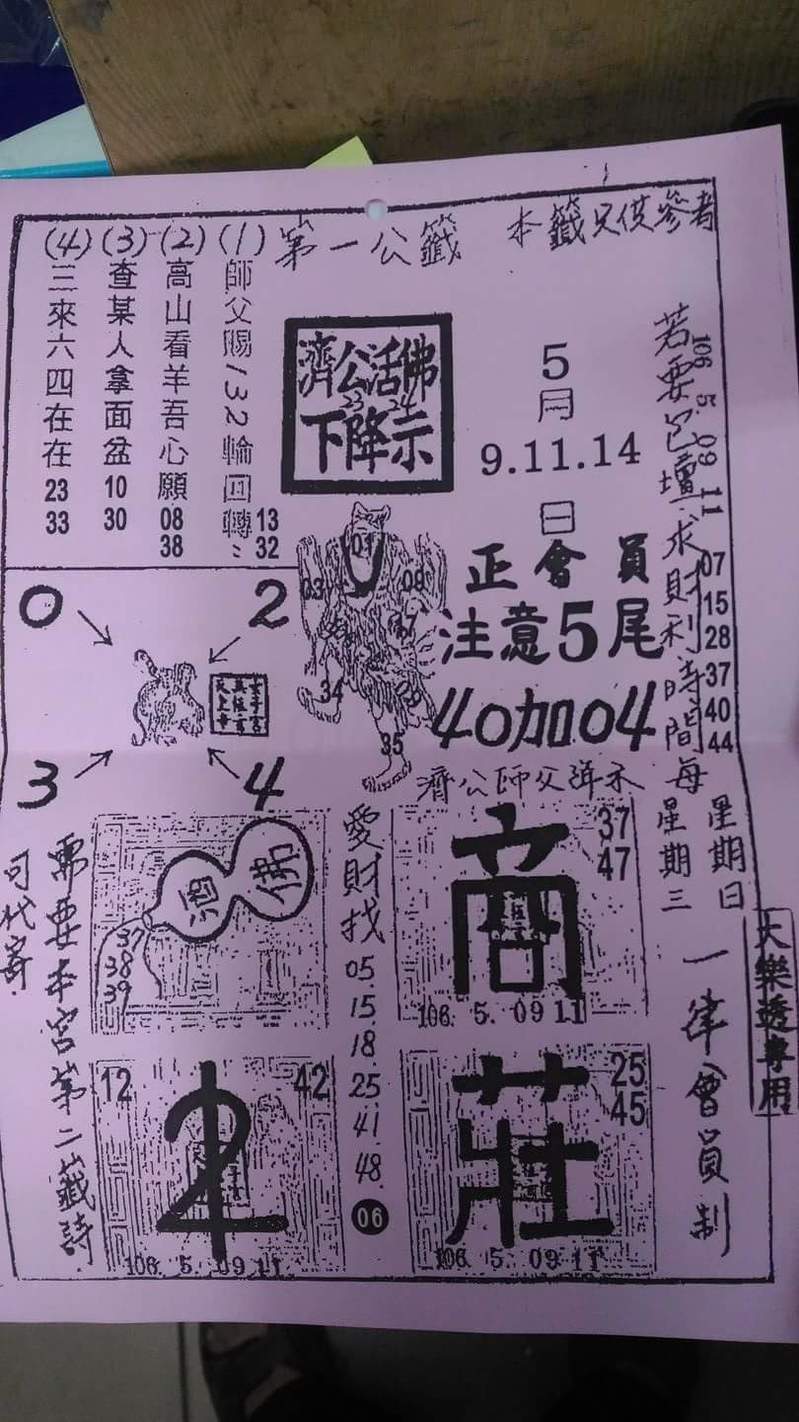 第一公籤 本籤只供參考
(1) 師父賜132輪回轉 13 32
(2) 高山看羊吾心願 08 38
(3) 查某人拿面盆 10 30
(4) 三來六四在在 23 33
濟公活佛
23 24
下降示
5
月
9.11.14
日
正會員
注意5尾
40加04
濟公師父降示
106 5. 09 11
07
15
28
37
40
44
若要包壇求財利時間每
星期日
星期三
一律會員制
大樂透專用
0
2
3
4
01
03
09
34
35
佛
37
38
39
愛財找
05
15
18
25
41
48
06
商
37
47
106. 5. 09 11
12
42
2
106. 5. 09 11
莊
25
45
106. 5. 09 11
需要本宮第二籤詩
可代寄